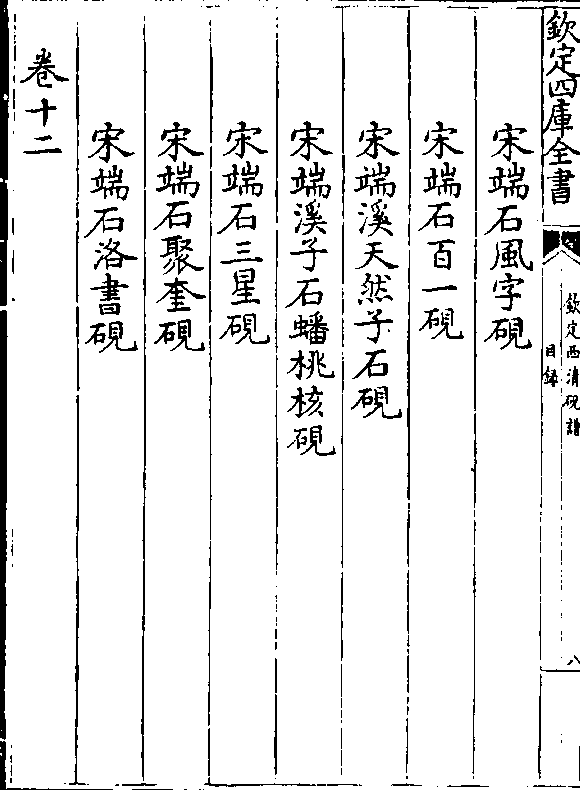 欽定四庫全書
欽定西清硯譜
目錄
八
宋端石風字硯
宋端石百一硯
宋端溪天然子石硯
宋端溪子石蟠桃核硯
宋端石三星硯
宋端石聚奎硯
宋端石洛書硯
卷十二